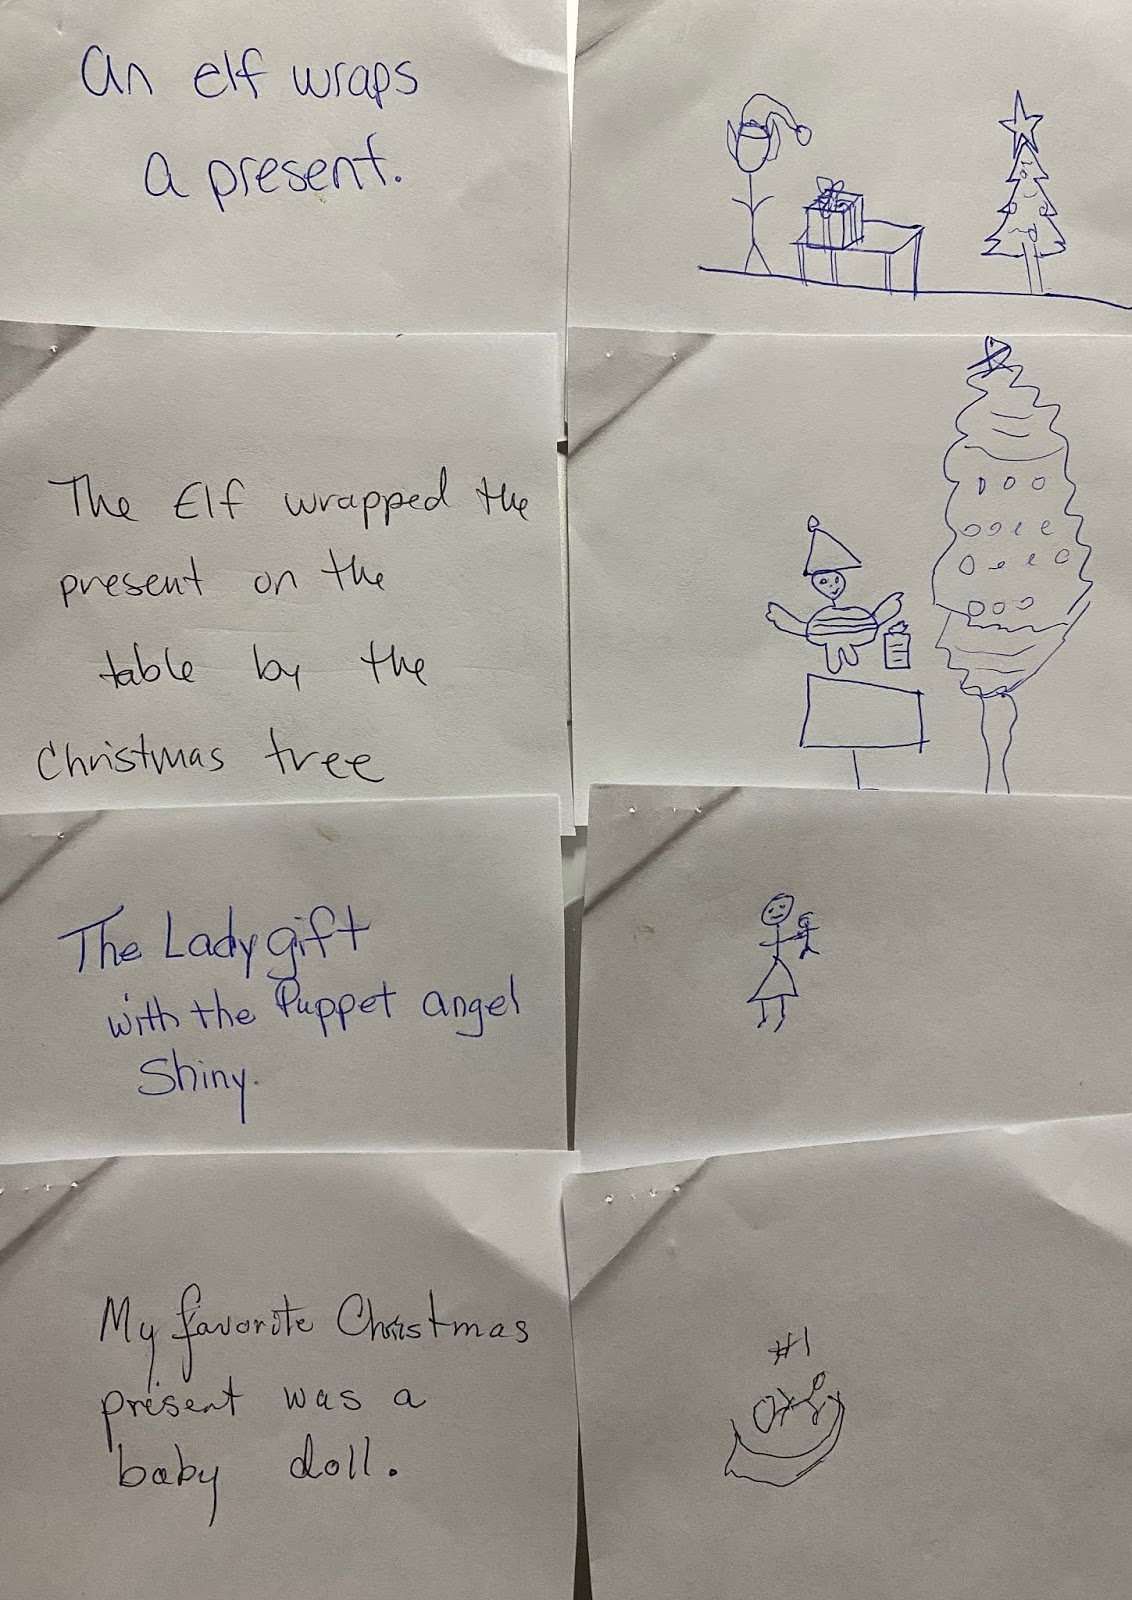 An elf wraps
a present.
The Elf wrapped the
present on the
table by the
Christmas tree
The Lady gift
with the Puppet angel
Shiny.
My favorite Christmas
present was a
baby doll.
#1